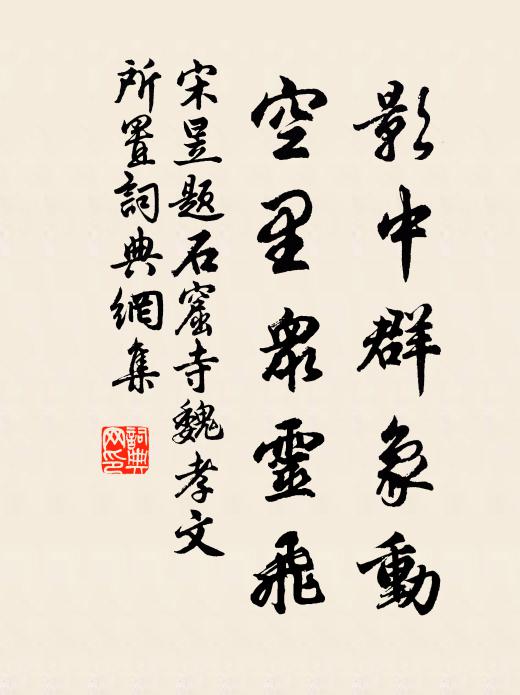 影中群象動
空里眾靈飛
宋昱題石窟寺魏孝文
所置詞典網集
詞典
网印